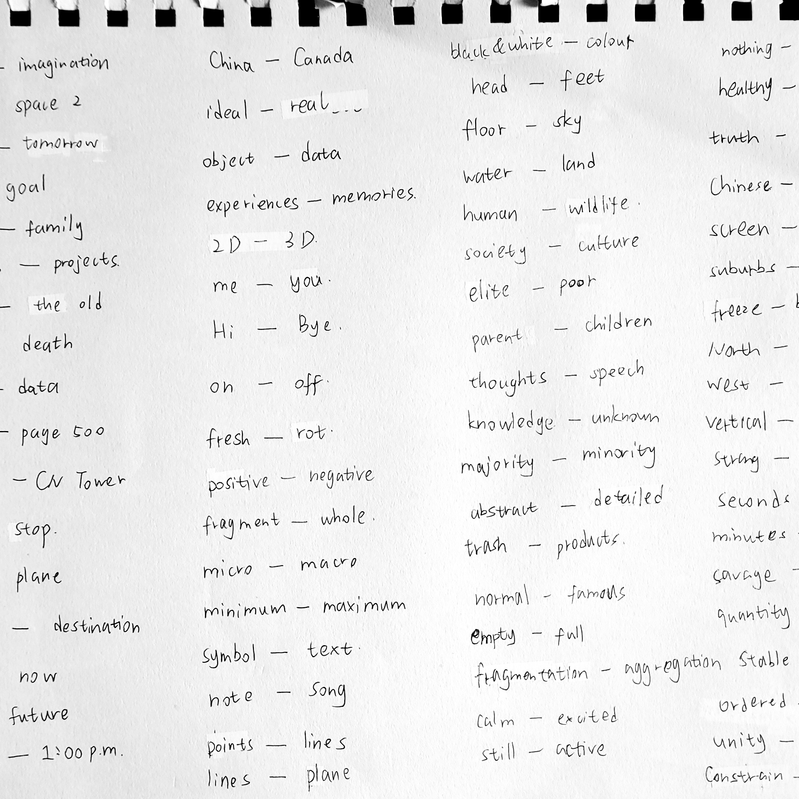 – imagination
space 2
– tomorrow
goal
– family
– projects.
– the old
death
– data
– page 500
– CN Tower
stop.
plane
– destination
now
future
– 1:00 p.m.
China – Canada
ideal – real...
object – data
experiences – memories.
2D – 3D.
me – you.
Hi – Bye.
on – off.
fresh – rot.
positive – negative
fragment – whole.
micro – macro
minimum – maximum
symbol – text.
note – song
points – lines
lines – plane
black & white – colour
head – feet
floor – sky
water – land
human – wildlife.
society – culture
elite – poor
parent – children
thoughts – speech
knowledge – unknown
majority – minority
abstract – detailed
trash – products.
normal – famous
empty – full
fragmentation – aggregation
calm – excited
still – active
nothing –
healthy –
truth –
Chinese –
screen –
suburbs –
freeze –
North –
west –
vertical –
strong –
seconds
minutes
savage –
quantity
Stable
ordered
unity –
Constrain –